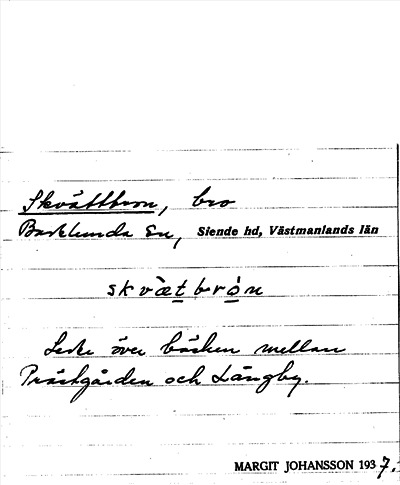 Skvättbron, bro
Barklunda sn, Siende hd, Västmanlands län
skvætbrón
Ledde över bäcken mellan
Prästgården och Långby.
MARGIT JOHANSSON 1937.